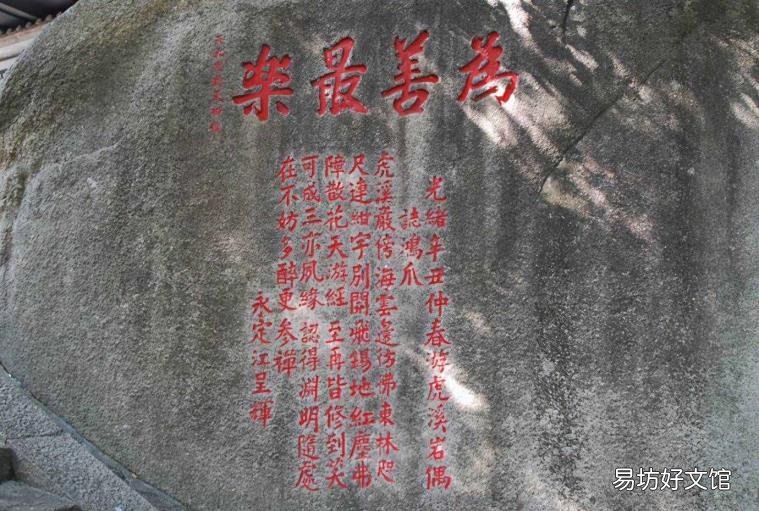 為善最樂
光緒辛丑仲春游虎溪岩偶
誌鴻爪
虎溪巖傍海雲邊彷彿東林咫
尺連紺宇別開飛錫地紅塵弗
障散花天游經至再皆修到笑
可成三亦夙緣認得淵明隨處
在不妨多醉更参禅
永定江呈輝
易坊好文馆